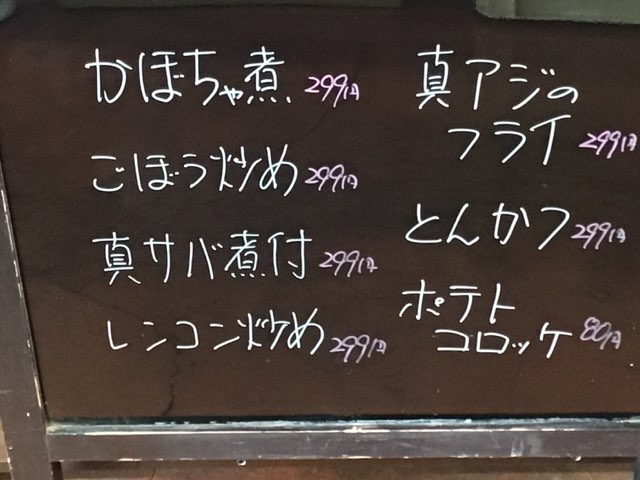 かぼちゃ煮 299円
ごぼう炒め 299円
真サバ煮付 299円
レンコン炒め 299円
真アジの
フライ 299円
とんかつ 299円
ポテト
コロッケ 80円